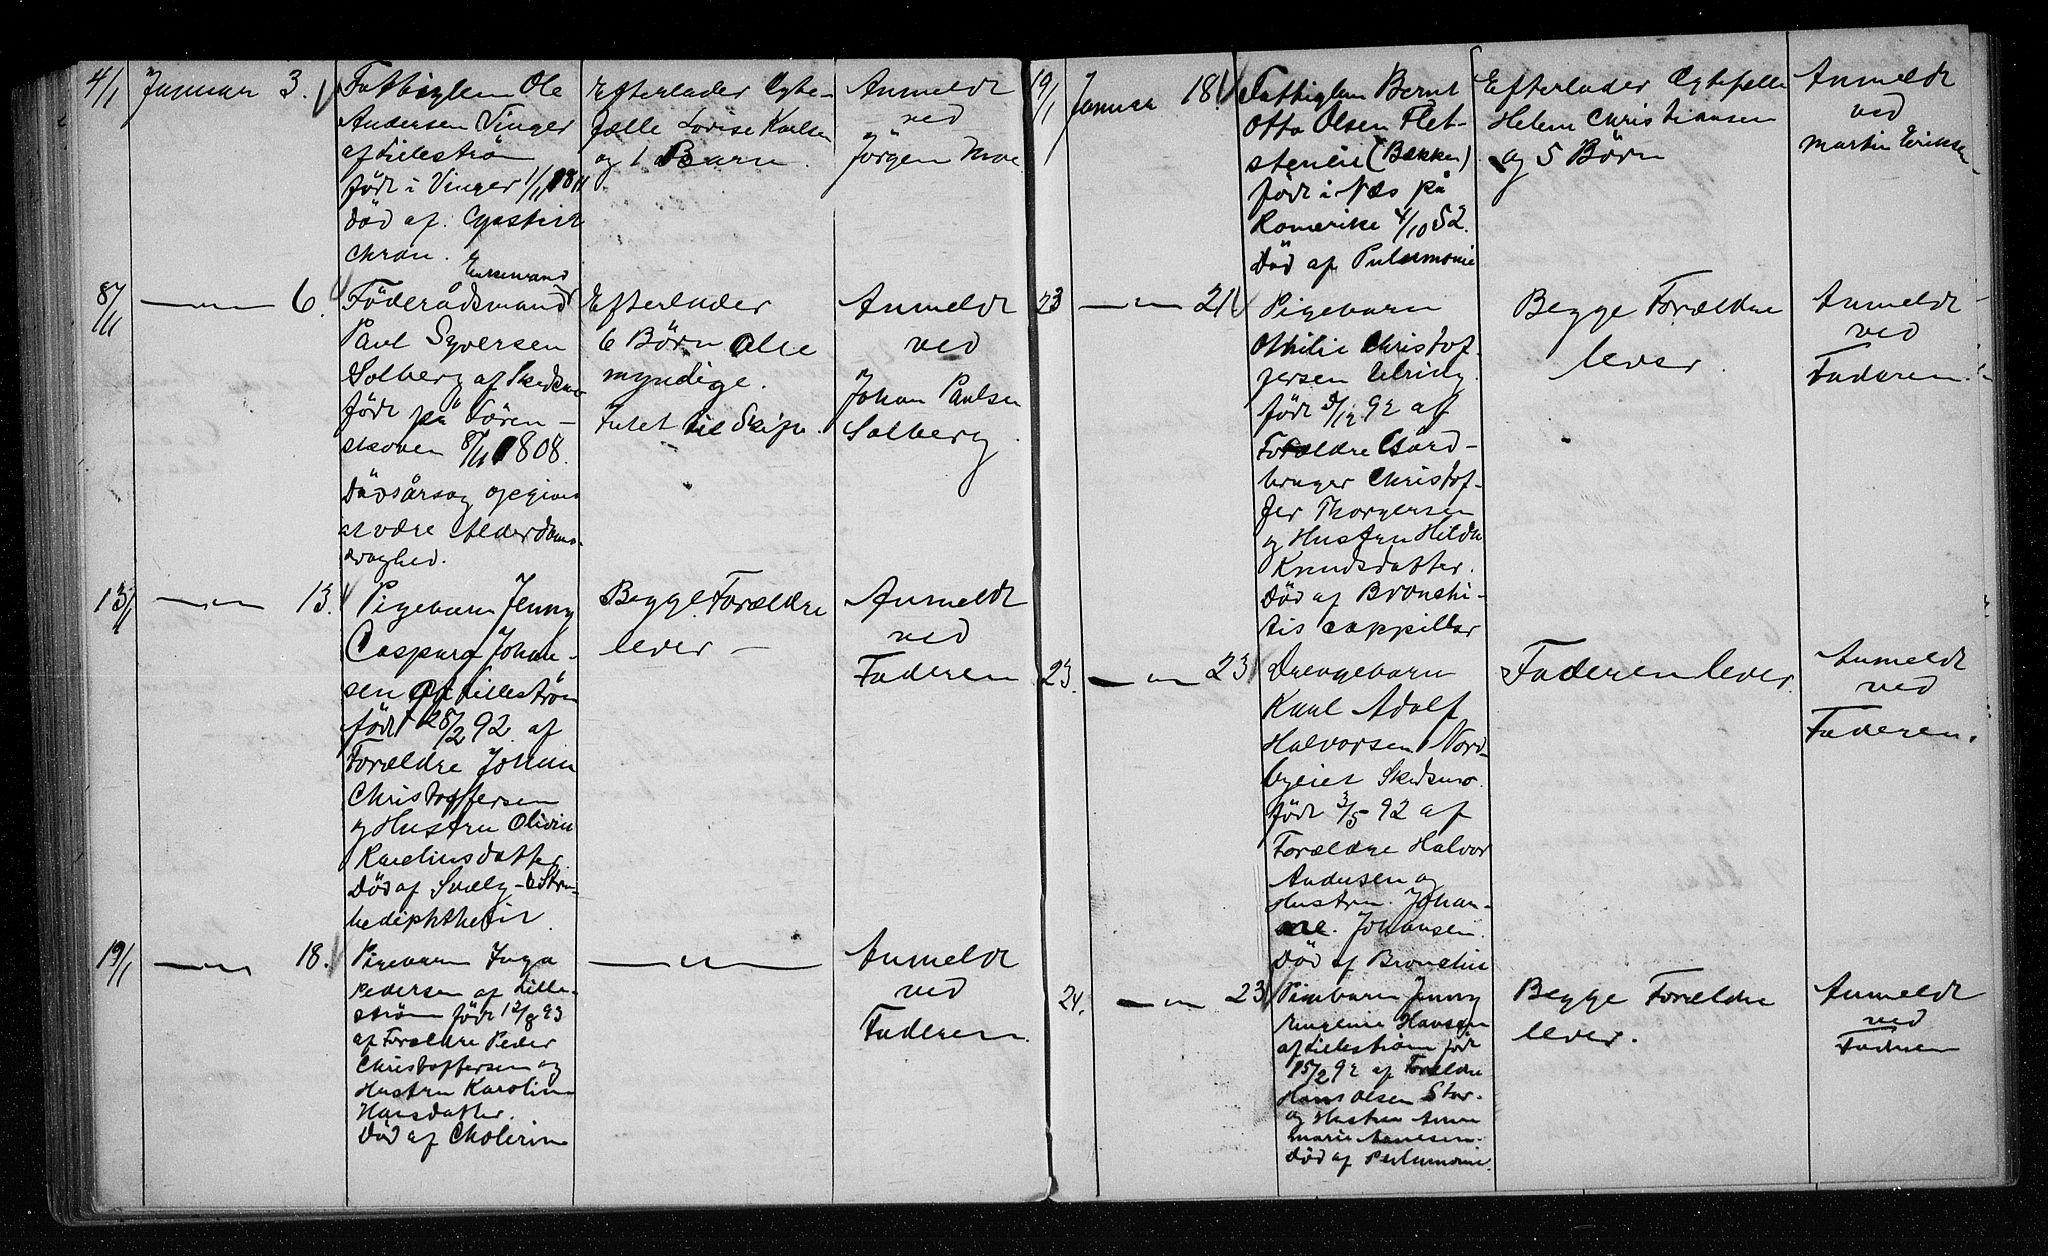 4/1 Januar 3.
Fattiglem Ole
Andersen Vinger
af Lillestrøm
født i Vinger 1/11 1811
Død af. Cystitis
chron.
Efterlader Ægte-
fælle Lovise Karlsen
og 1 Barn.
Anmeldt
ved
Jørgen Moe
8/11 — " — 6.
Enkemand
Föderådsmand
Paul Syversen
Solberg af Skedsmo
født på Sören-
skoven 8/11 1808.
Dödsårsag opgives
at være Alderdoms-
svaghed.
Efterlader
6 Börn Alle
myndige.
Intet til Skifte.
Anmeldt
ved
Johan Paulsen
Solberg.
13/1 — " — 13.
Pigebarn Jenny
Caspara Johan-
sen af Lilleström
födt 28/2 92. af
Forældre Johan
Christoffersen
og Hustru Olivia
Karelinsdatter.
Död af Svælg- & Stru-
bediphtherit.
Begge Forældre
lever —
Anmeldt
ved
Faderen
19/1 — " — 18.
Pigebarn Inga
Pedersen af Lille-
ström födt 12/8 93
af Forældre Peder
Christoffersen og
Hustru Karoline
Hansdatter.
Död af Cholerine
— " —
Anmeldt
ved
Faderen.
19/1 Januar 18
Fattiglem Bernt
Otto Olsen Flet-
steneie (Bækken)
födt i Næs på
Romerike 4/10 52.
Död af Pulmonie
Efterlader Ægtefelle
Helene Christiansen
og 5 Börn
Anmeldt
ved
Martin Eriksen
23 — " — 21
Pigebarn
Othilie Christof-
fersen Ulriks.
födt 3/12. 92 af
Forældre Gård-
bruger Christof-
fer Thorgersen
og Hustru Hilda
Knudsdatter.
Död af Bronchi-
tis cappillar
Begge Forældre
lever.
Anmeldt
ved
Faderen.
23. — " — 23
Drengebarn
Karl Adolf
Halvorsen Nord-
byeiet Skedsmo.
födt 3/5 92 af
Forældre Halvor
Andersen og
Hustru. Johan-
ne. Johansen.
Död af Bronchit
Faderen lever.
Anmeldt
ved
Faderen.
24. — " — 23
Pigebarn Jenny
Engeline Hansen
af Lilleström födt
15/2 92 af Forældre
Hans Olsen Stor-
og Hustru Anne
Marie
Död af Pulmonie.
Begge Forældre
lever.
Anmeldt
ved
Faderen